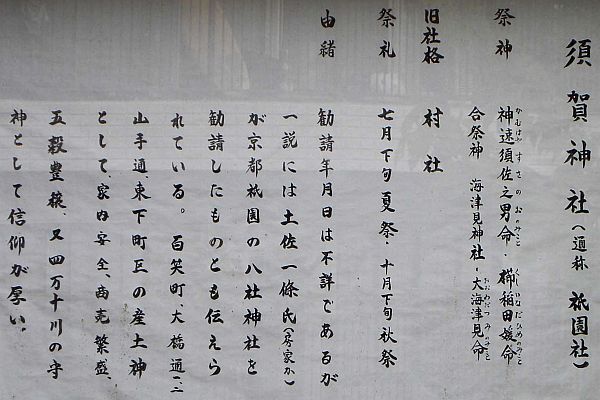 須賀神社(通称 祇園社)
祭神 神速須佐之男命・櫛稲田媛命
合祭神 海津見神社・大海津見命
旧社格 村社
祭礼 七月下旬夏祭・十月下旬秋祭
由緒 勧請年月日は不詳であるが
一説には土佐一條氏(房家か)
が京都祇園の八社神社を
勧請したものとも伝えら
れている。百笑町、大橋通一二
山手通、東下町区の産土神
として家内安全、商売繁盛、
五穀豊穣、又四万十川の守
神として信仰が厚い。